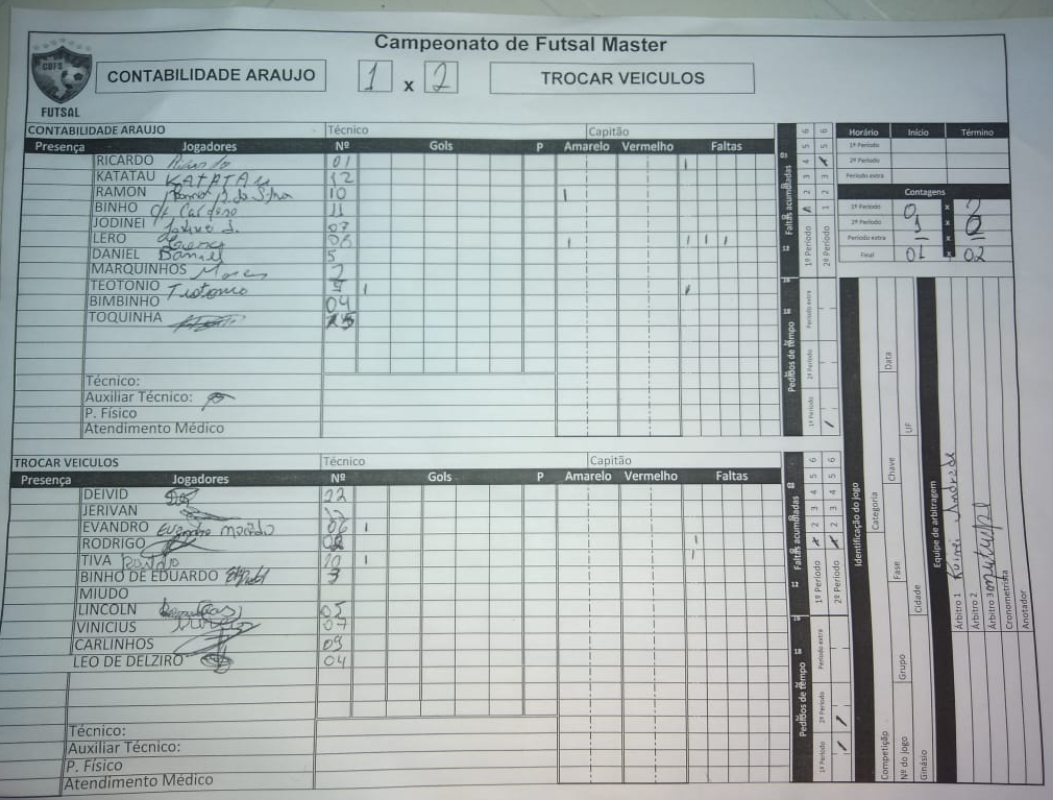 Campeonato de Futsal Master
CBFS
FUTSAL
CONTABILIDADE ARAUJO 1 x 2 TROCAR VEICULOS
CONTABILIDADE ARAUJO Técnico Capitão
Presença Jogadores Nº Gols P Amarelo Vermelho Faltas
RICARDO Ricardo 01
KATATAU KATATAU 12
RAMON 10
BINHO Cardoso 11
JODINEI 07
LERO 06
DANIEL Daniel 5
MARQUINHOS
TEOTONIO Teotonio
BIMBINHO 04
TOQUINHA
Técnico:
Auxiliar Técnico:
P. Físico
Atendimento Médico
TROCAR VEICULOS Técnico Capitão
Presença Jogadores Nº Gols P Amarelo Vermelho Faltas
DEIVID 22
JERIVAN
EVANDRO Evandro 06
RODRIGO
TIVA 10
BINHO DE EDUARDO
MIUDO
LINCOLN 05
VINICIUS 07
CARLINHOS 09
LEO DE DELZIRO 04
Técnico:
Auxiliar Técnico:
P. Físico
Atendimento Médico
Faltas acumuladas
1º Período 2 3 4 5 6
2º Período 1 2 3 5 6
Pedidos de tempo
1º Período 2º Período Período extra
Faltas acumuladas
1º Período 2 3 4 5 6
2º Período 2 3 4 5 6
Pedidos de tempo
1º Período 2º Período Período extra
Horário Início Término
1º Período
2º Período
Período extra
Contagens
1º Período 0 x 2
2º Período 1 x 0
Período extra x
Final 01 x 02
Identificação do jogo
Competição Categoria Data
Nº do Jogo Grupo Fase Chave UF
Ginásio Cidade
Equipe de arbitragem
Árbitro 1 Andrade
Árbitro 2
Árbitro 3
Cronometrista
Anotador